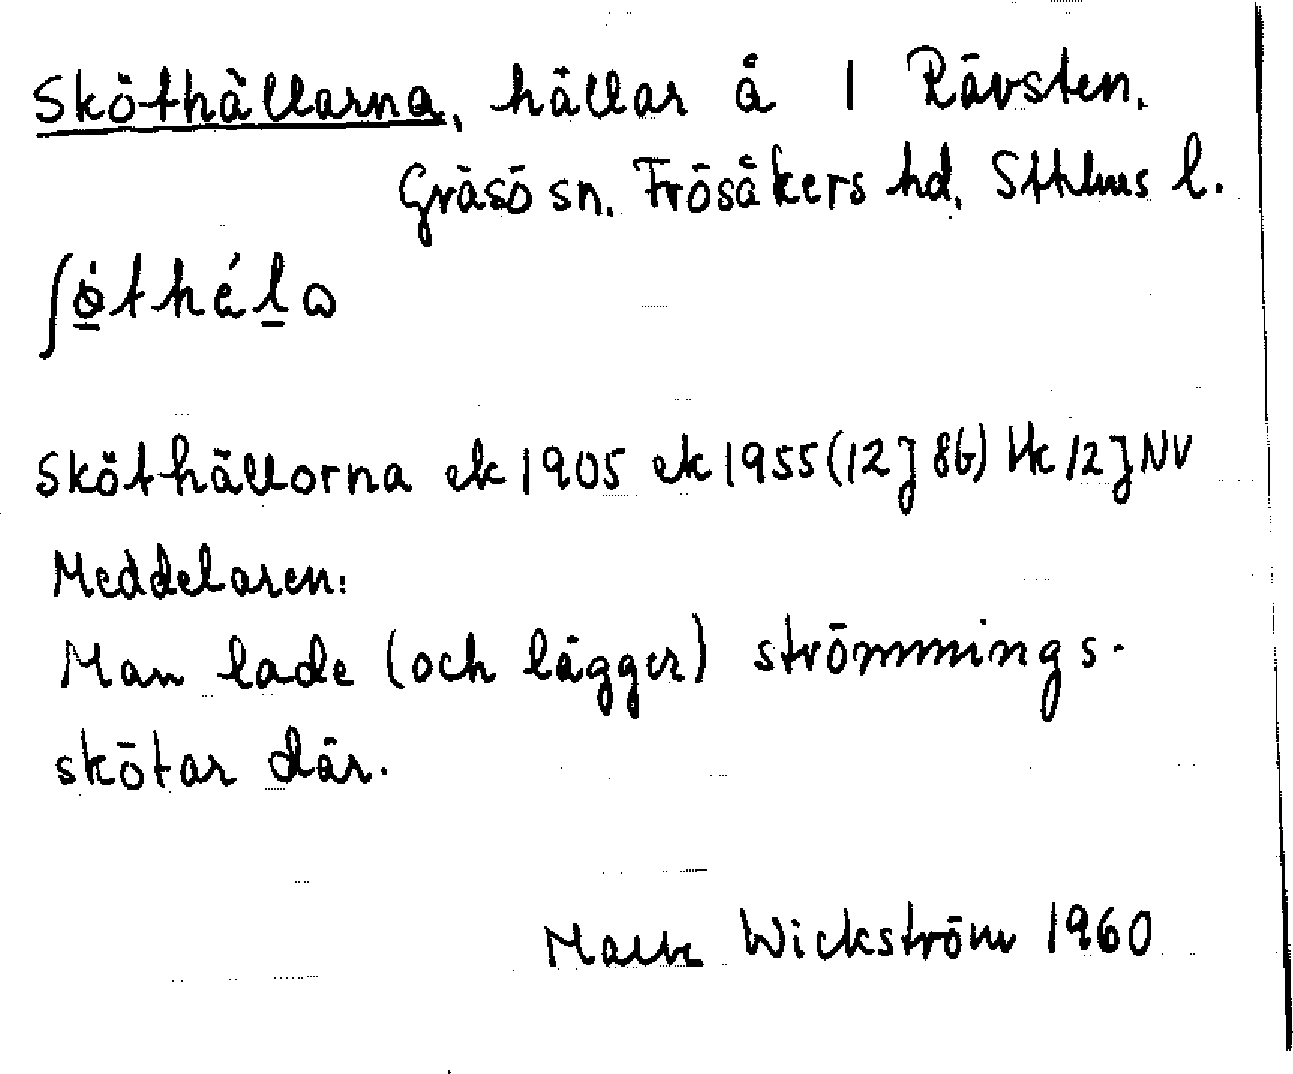 Sköthällarna, hällar å 1 Rävsten.
Gräsö sn. Frösåkers hd. Sthlms l.
ʃö̱théḻa
Sköthällorna ek 1905 ek 1955 (12 J 8b) Hk 12 J NV
Meddelaren:
Man lade (och lägger) strömmings-
skötar där.
Wickström 1960